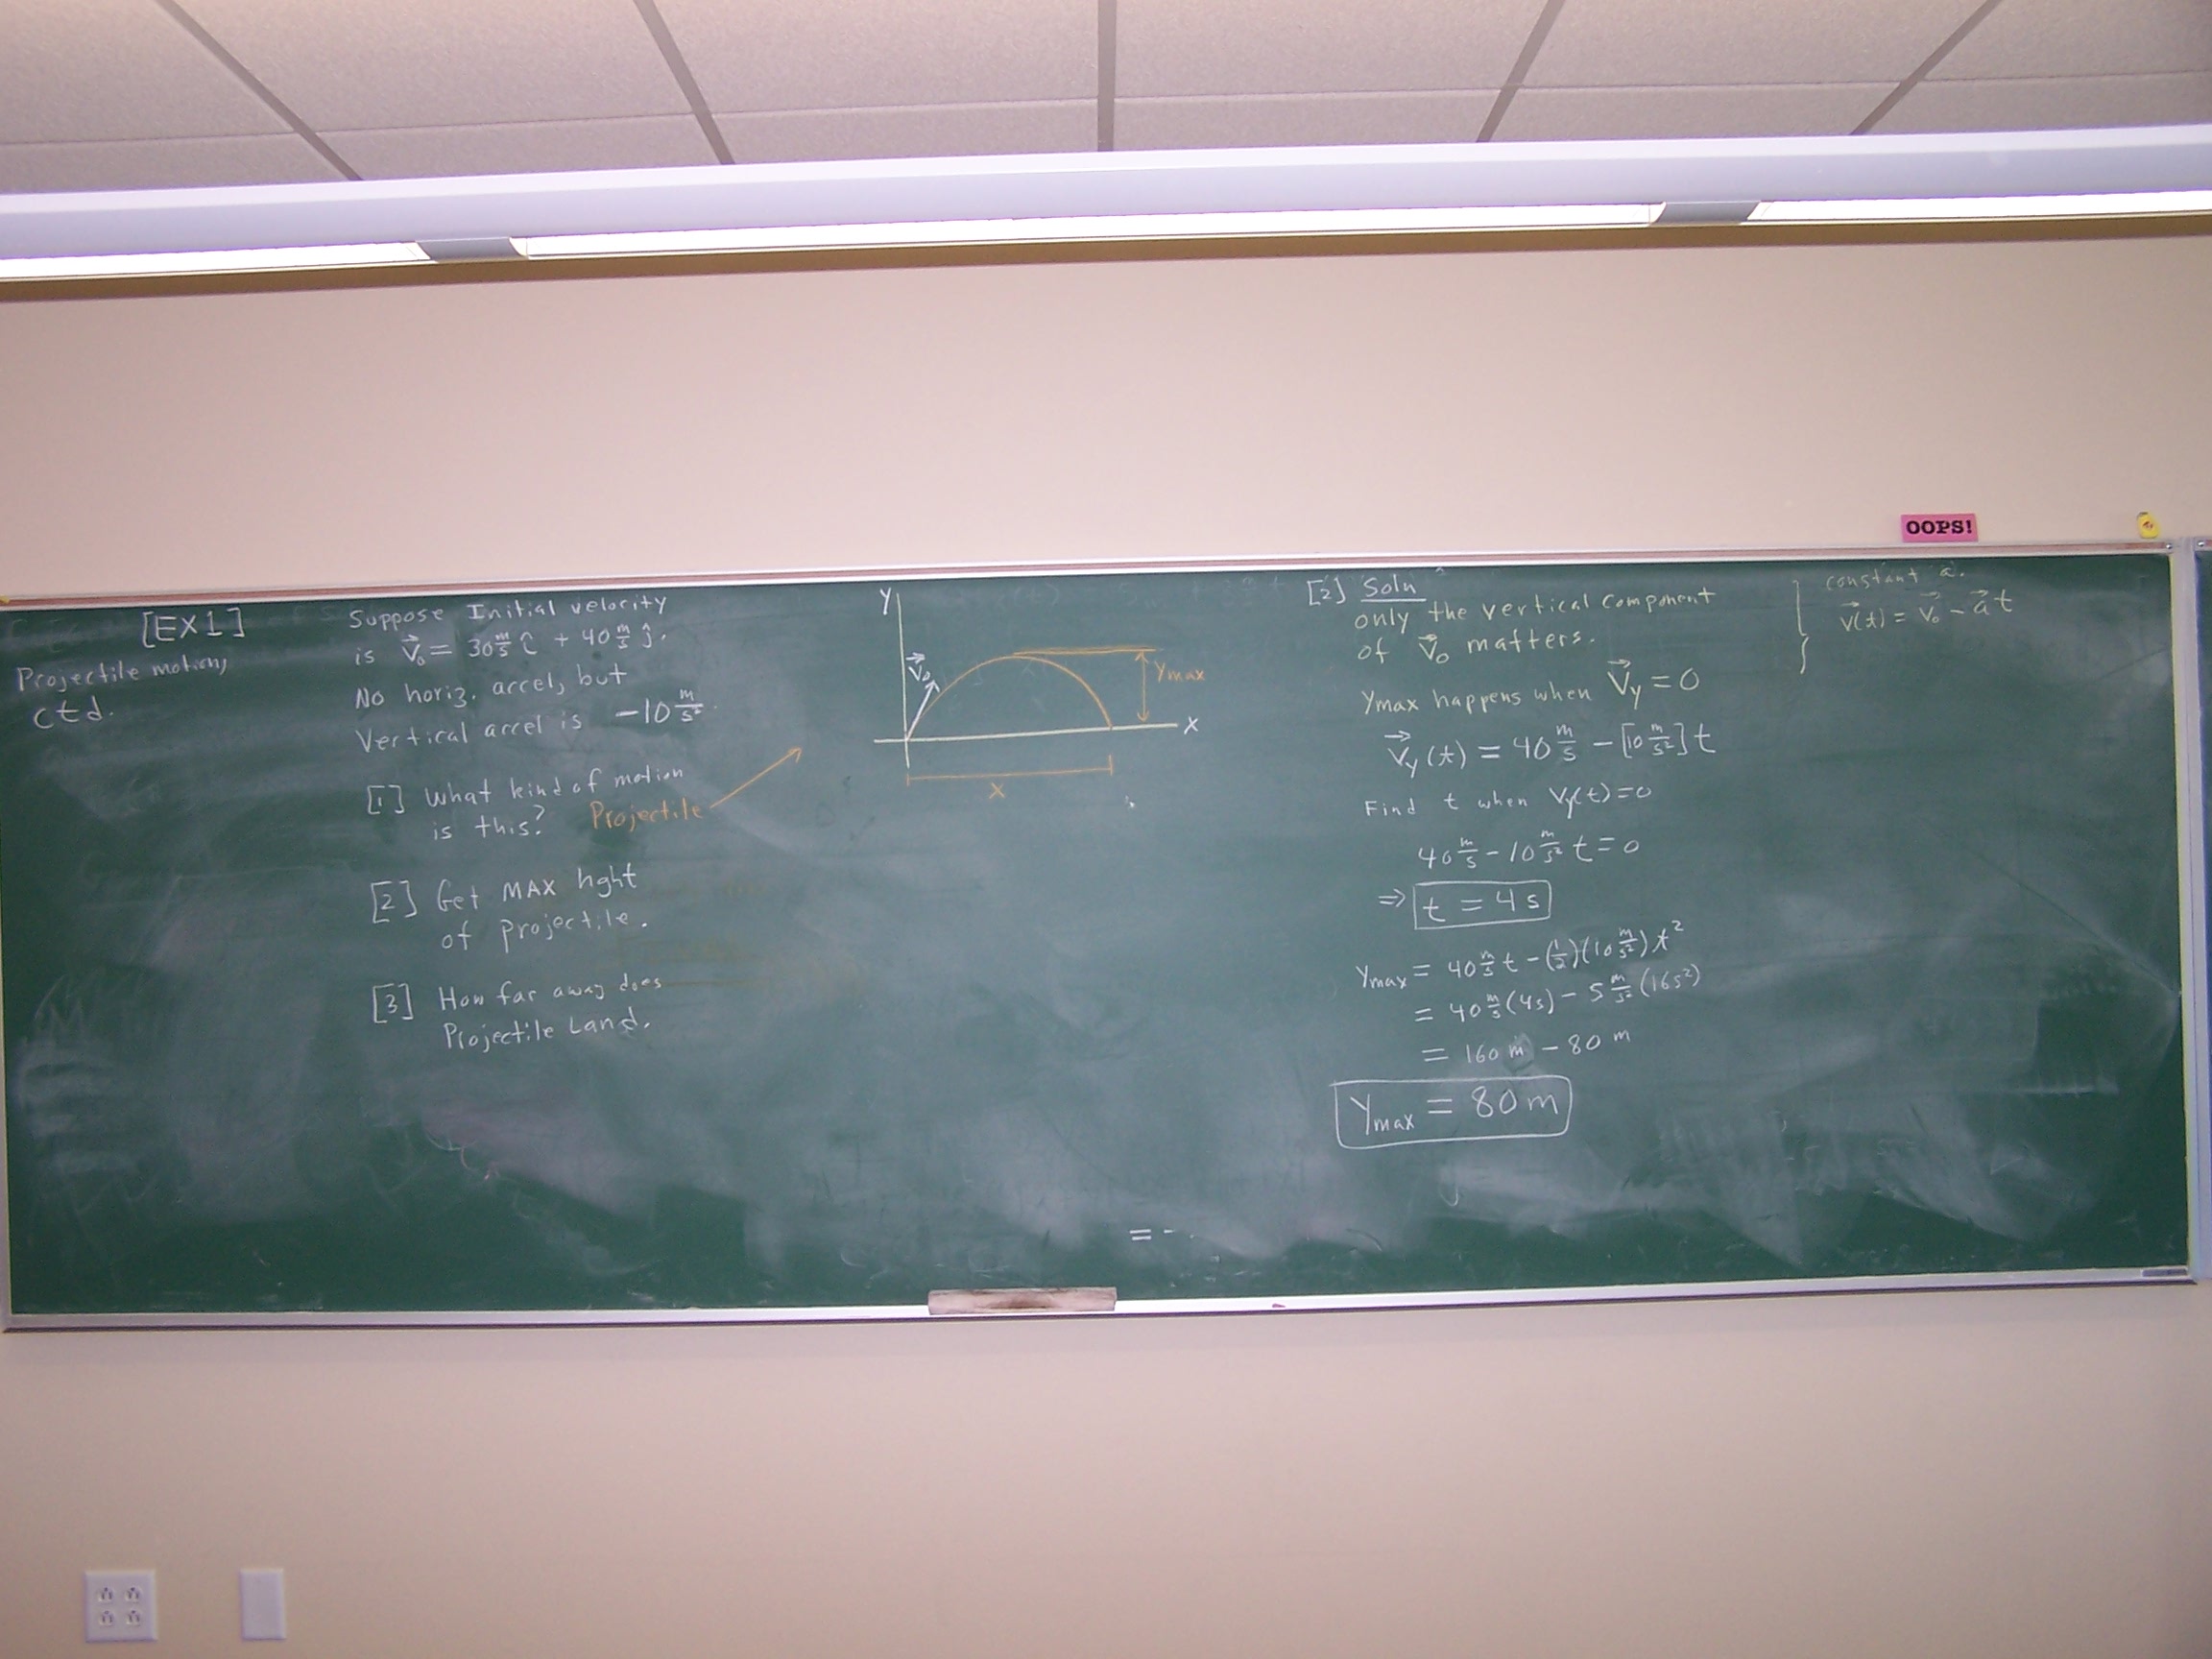 OOPS!
[EX1]
Projectile motion,
ctd.
Suppose Initial velocity
is V⃗₀ = 30 m/s î + 40 m/s ĵ.
No horiz. accel, but
Vertical accel is −10 m/s².
[1] What kind of motion
is this? Projectile
[2] Get MAX hght
of projectile.
[3] How far away does
Projectile Land.
Y
V⃗₀
Ymax
X
X
[2] Soln
only the vertical component
of V⃗₀ matters.
Ymax happens when V⃗y = 0
V⃗y(t) = 40 m/s − [10 m/s²] t
Find t when Vy(t)=0
40 m/s − 10 m/s² t = 0
⇒ t = 4s
Ymax = 40 m/s t − (1/2)(10 m/s²) t²
= 40 m/s (4s) − 5 m/s² (16s²)
= 160 m − 80 m
Ymax = 80 m
constant a.
v⃗(t) = v⃗₀ − a⃗t
= -.